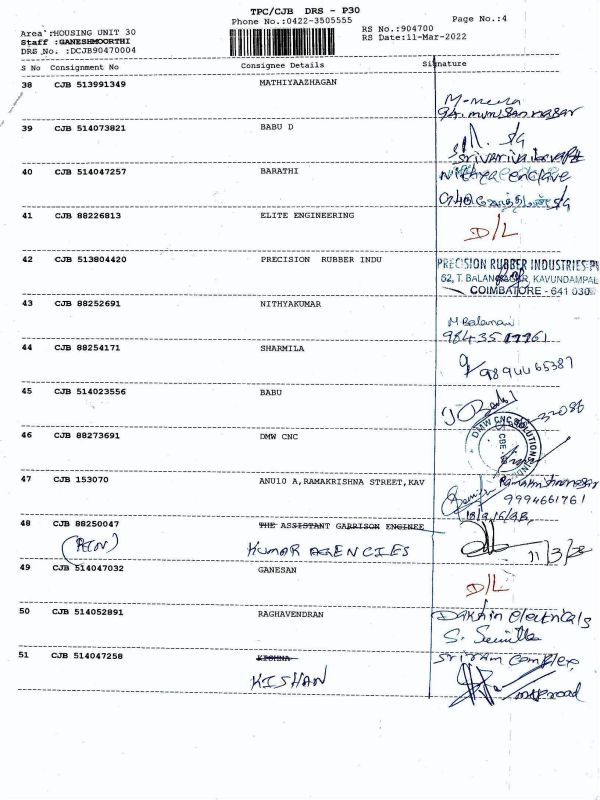 TPC/CJB DRS - P30
Phone No.:0422-3505555
Page No.:4
Area :HOUSING UNIT 30
Staff :GANESHMOORTHI
DRS No. :DCJB90470004
RS No.:904700
RS Date:11-Mar-2022
S No Consignment No Consignee Details Signature
38 CJB 513991349 MATHIYAAZHAGAN
39 CJB 514073821 BABU D
40 CJB 514047257 BARATHI
41 CJB 88226813 ELITE ENGINEERING
D/L
42 CJB 513804420 PRECISION RUBBER INDU
PRECISION RUBBER INDUSTRIES
62, T. BALAN NAGAR, KAVUNDAMPAL
COIMBATORE - 641 030
43 CJB 88252691 NITHYAKUMAR
44 CJB 88254171 SHARMILA
9894465387
45 CJB 514023556 BABU
46 CJB 88273691 DMW CNC
DMW CNC SOLUTION INDIA
CBE
47 CJB 153070 ANU10 A,RAMAKRISHNA STREET,KAV
9994661761
48 CJB 88250047 THE ASSISTANT GARRISON ENGINEE
KUMAR AGENCIES
11/3/
49 CJB 514047032 GANESAN
D/L
50 CJB 514052891 RAGHAVENDRAN
Dakshin electricals
51 CJB 514047258 KISHNA
Sriram complex,
KISHAN